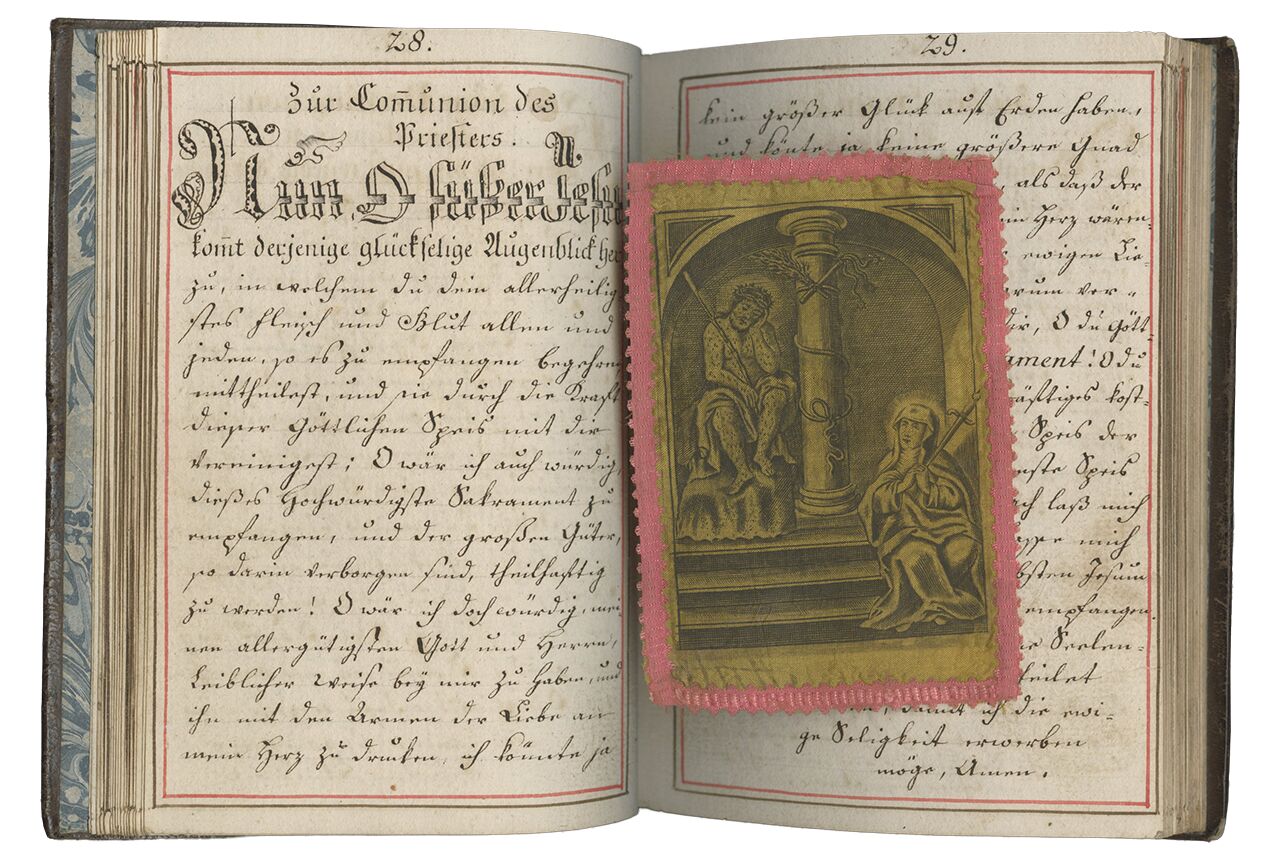 28.
Zur Com̅union des
Priesters.
Nun, O süßer Jesu
kom̅t derjenige glückselige Augenblick her
zu, in welchem du dein allerheilig
stes Fleisch und Blut allen und
jeden, so es zu empfangen begehren
mittheilest, und sie durch die Kraft
dieser Göttlichen Speis mit dir
vereinigest; O wär ich auch würdig,
dieses Hochwürdigste Sakrament zu
empfangen, und der großen Güter,
so darin verborgen sind, theilhafftig
zu werden! O wär ich doch würdig, mei
nen allergütigsten Gott und Herrn,
Leiblicher Weise bey mir zu haben, und
ihn mit den Armen der Liebe an
mein Herz zu drucken, ich könte ja
29.
kein größer Glück auf Erden haben,
und könte ja keine größere Gnad
, als daß der
ein Herz wären
ewigen Lie-
rum ver-
dir, O du Gött-
ament! O du
äftiges kost-
Speis der
nste Speis
ch laß mich
mich
bsten Jesum
empfangen
Seelen-
theilet
, damit ich die ewi-
ge Seligkeit erwerben
möge, Amen.